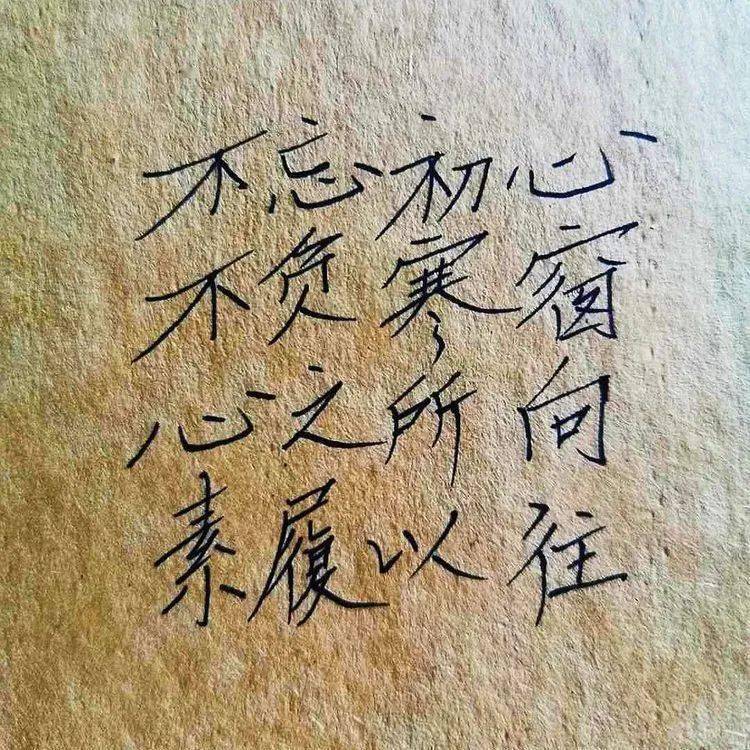 不忘初心
不负寒窗
心之所向
素履以往